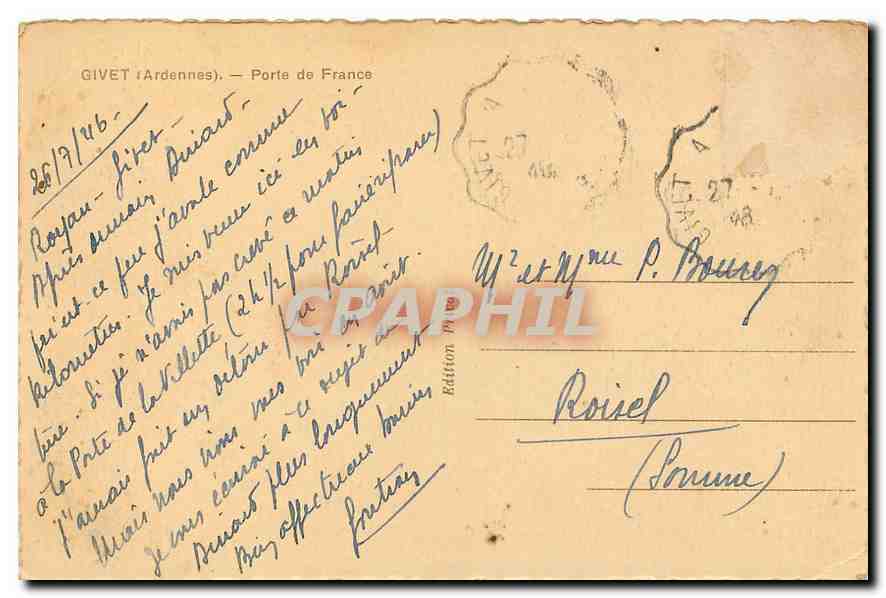 GIVET (Ardennes). — Porte de France
26/7/46 -
Royan - Givet -
Après demain Dinard -
qu'est-ce que j'avale comme
kilomètres. Je suis venu ici en voi-
ture. Si je n'avais pas crevé ce matin
à la Porte de la Villette (2h 1/2 pour faire réparer)
j'aurais fait un détour par Roisel
Mais nous nous verrons en août.
Je vous écrirai à ce sujet de
Dinard plus longuement
Bien affectueux baisers
Edition
Mr et Mme P. Bourez
Roisel
(Somme)
GIVET A
27
GIVET A
27
CPAPHIL